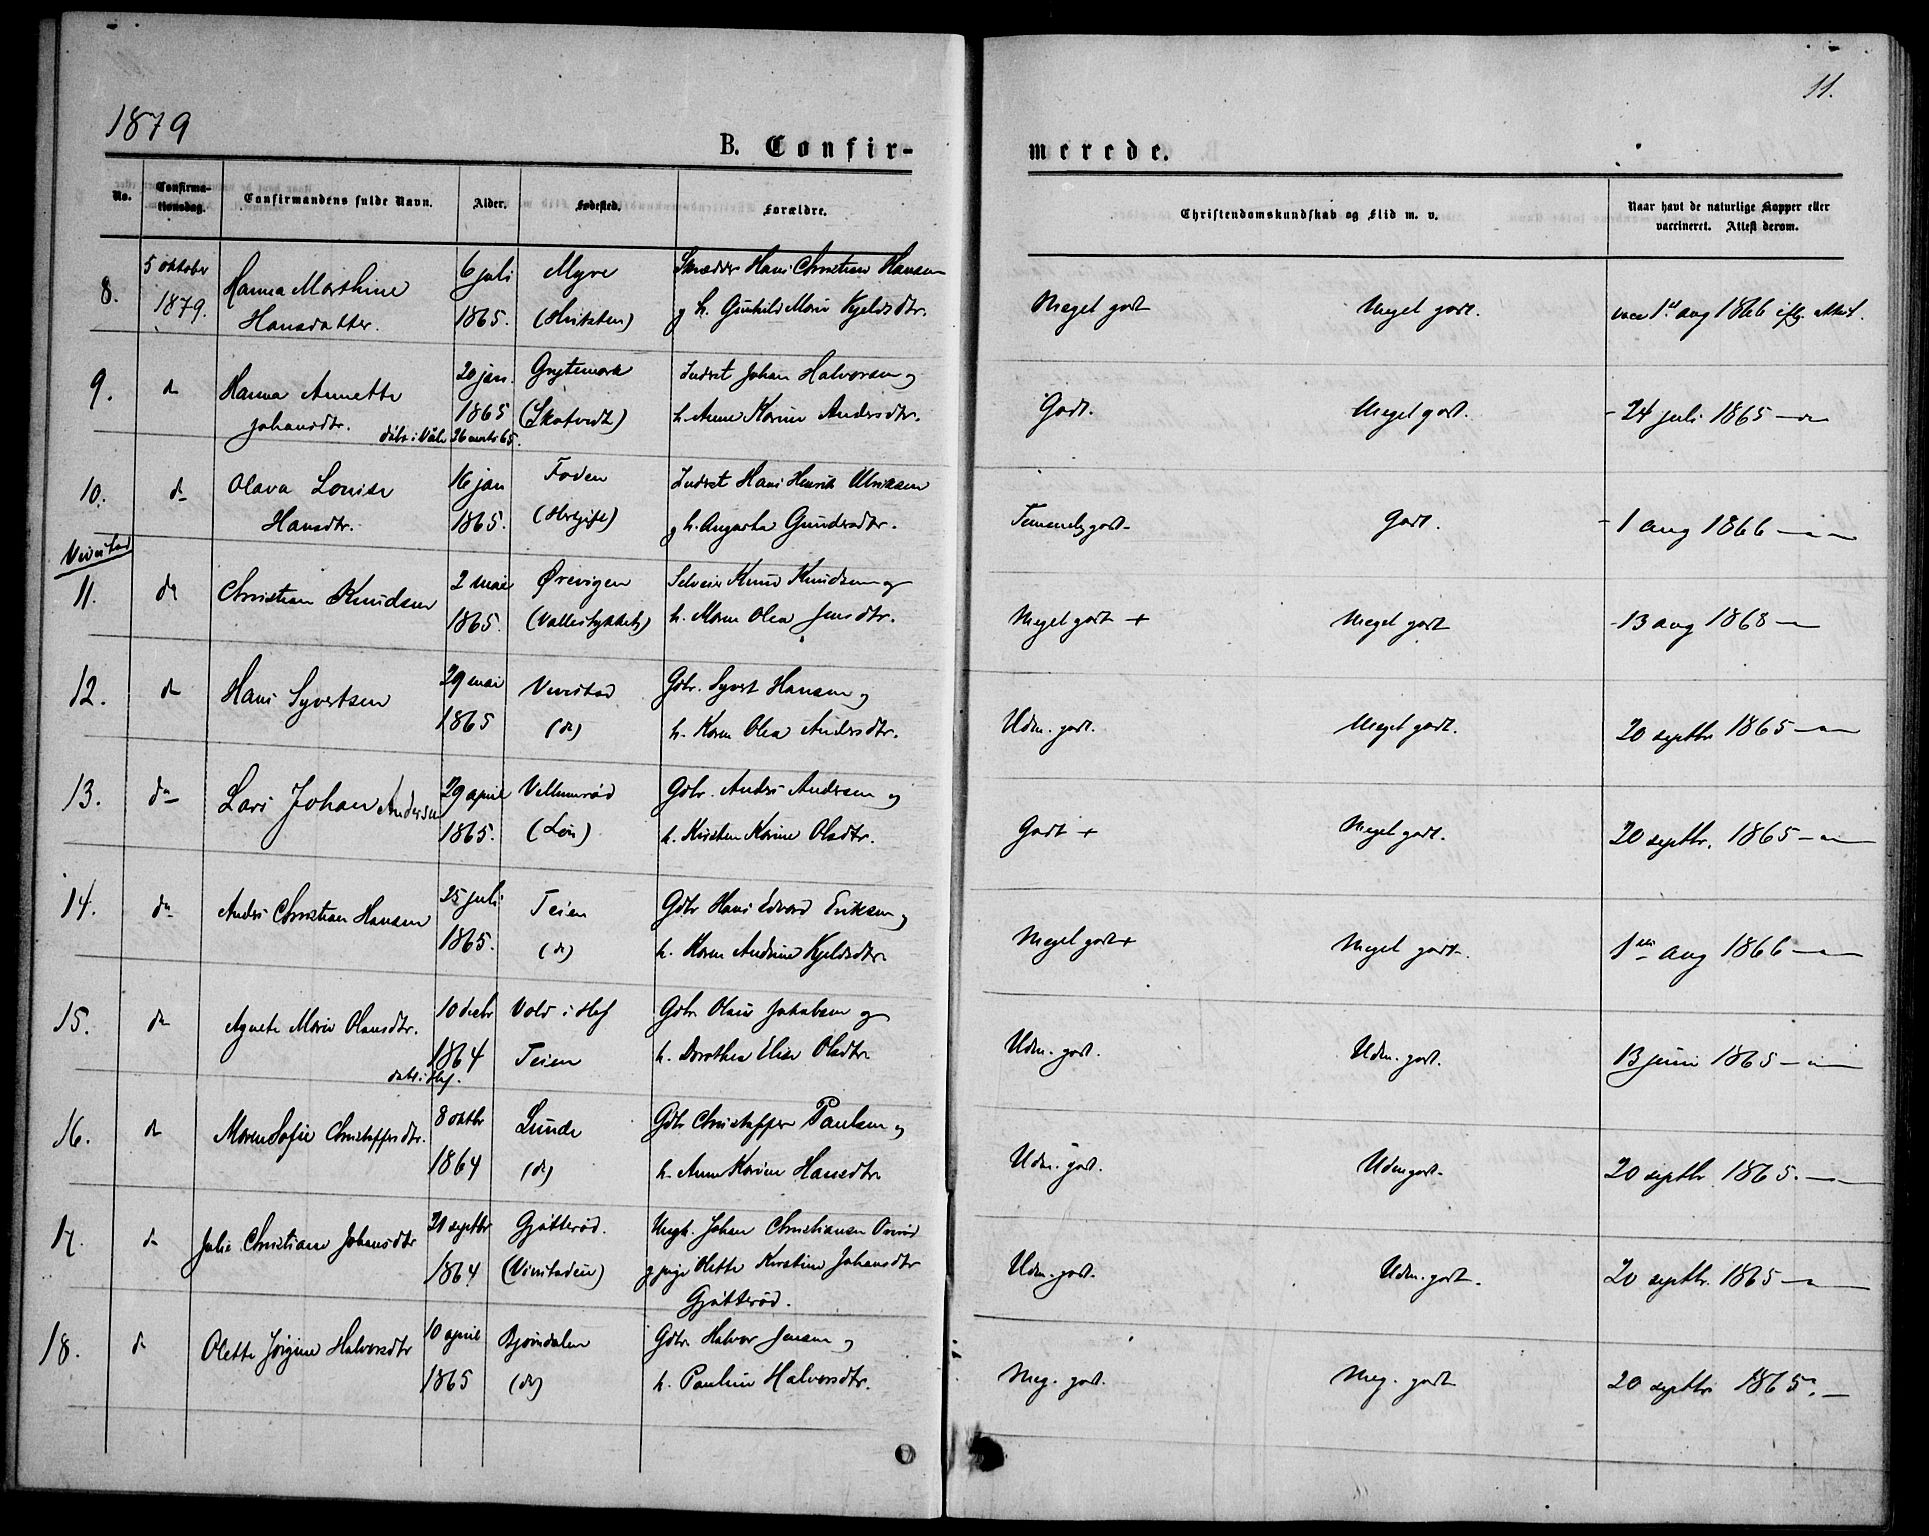 1879
11.
B. Confir-
merede.
No.
Confirma-
tionsdag.
Confirmandens fulde Navn.
Alder.
Fødested.
Forældre.
Christendomskundskab og Flid m. v.
Naar havt de naturlige Kopper eller
vaccineret. Attest derom.
8. 5 oktober Hanna Marthine 6 juli Myre Skrædder Hans Christian Hansen
1879. Hansdatter. 1865. (Hvitsten) og h. Gunhild Marie Kjeldsdtr.
Meget godt Meget godt. vacc 1st aug 1866 iflg. attest.
9. do Hanna Annette 20 jan. Grytemoen Inderst Johan Halvorsen og
Johansdtr. 1865 (Skotvedt) h. Anne Karine Andersdtr.
døbt i Vaale 26 marts 65.
Godt. Meget godt. - 24 juli 1865 - do
10. do Olava Louise 16 jan Foden Inderst Hans Henrik Ulriksen
Hansdtr. 1865. og h. Augusta Gundersdtr.
Temmelig godt- Godt. - 1 aug 1866 -
Vivestad
11. do Christian Knudsen 2 mai Ørevigen Selveier Knud Knudsen og
1865. (Vallestykket) h. Maren Olea Jensdtr.
Meget godt + Meget godt - 13 aug 1868 -
12. do Hans Syvertsen 29 mai Vivestad Gdbr. Syvert Hansen og
1865 (do) h. Karen Olea Andersdtr.
Udm. godt. Meget godt. 20 septbr 1865 -
13. do Lars Johan Andersen 29 april Gdbr. Anders Andersen og
1865. h. Kirsten Karine Olsdtr.
Godt + Meget godt. 20 septbr. 1865 -
14. do Anders Christian Hansen 25 juli Teien Gdbr Hans Edvard Eriksen og
1865. (do) h. Karen Andrine Kjeldsdtr.
Meget godt + Meget godt. 1ste aug 1866 -
15. do Agnete Marie Olausdtr. 10 decbr Vold i Hof Gdbr Olaus Jakobsen og
1864 Teien h. Dorothea Elise Olsdtr.
døbt i Hof.
Udm. godt. Udm. godt. 13 juni 1865 -
16. do Maren Sofie Christoffersdtr. 8 oktbr Lunde Gdbr Christoffer Paulsen og
1864 (do) h. Anne Karine Hansdtr.
Udm. godt. Udm godt. 20 septbr 1865. -
17. do Julie Christiane Johansdtr 21 septbr Gjøtterød. Ungk. Johan Christiansen
1864 og pige Olette Kirstine Johansdtr
Gjøtterød.
Udm. godt. Udm. godt. 20 septbr. 1865 -
18. do Olette Jørgine Halvorsdtr 10 april Bjørndalen Gdbr. Halvor Jensen og
1865 (do) h. Pauline Halvorsdtr.
Meg. godt. Meg. godt 20 septbr 1865. -